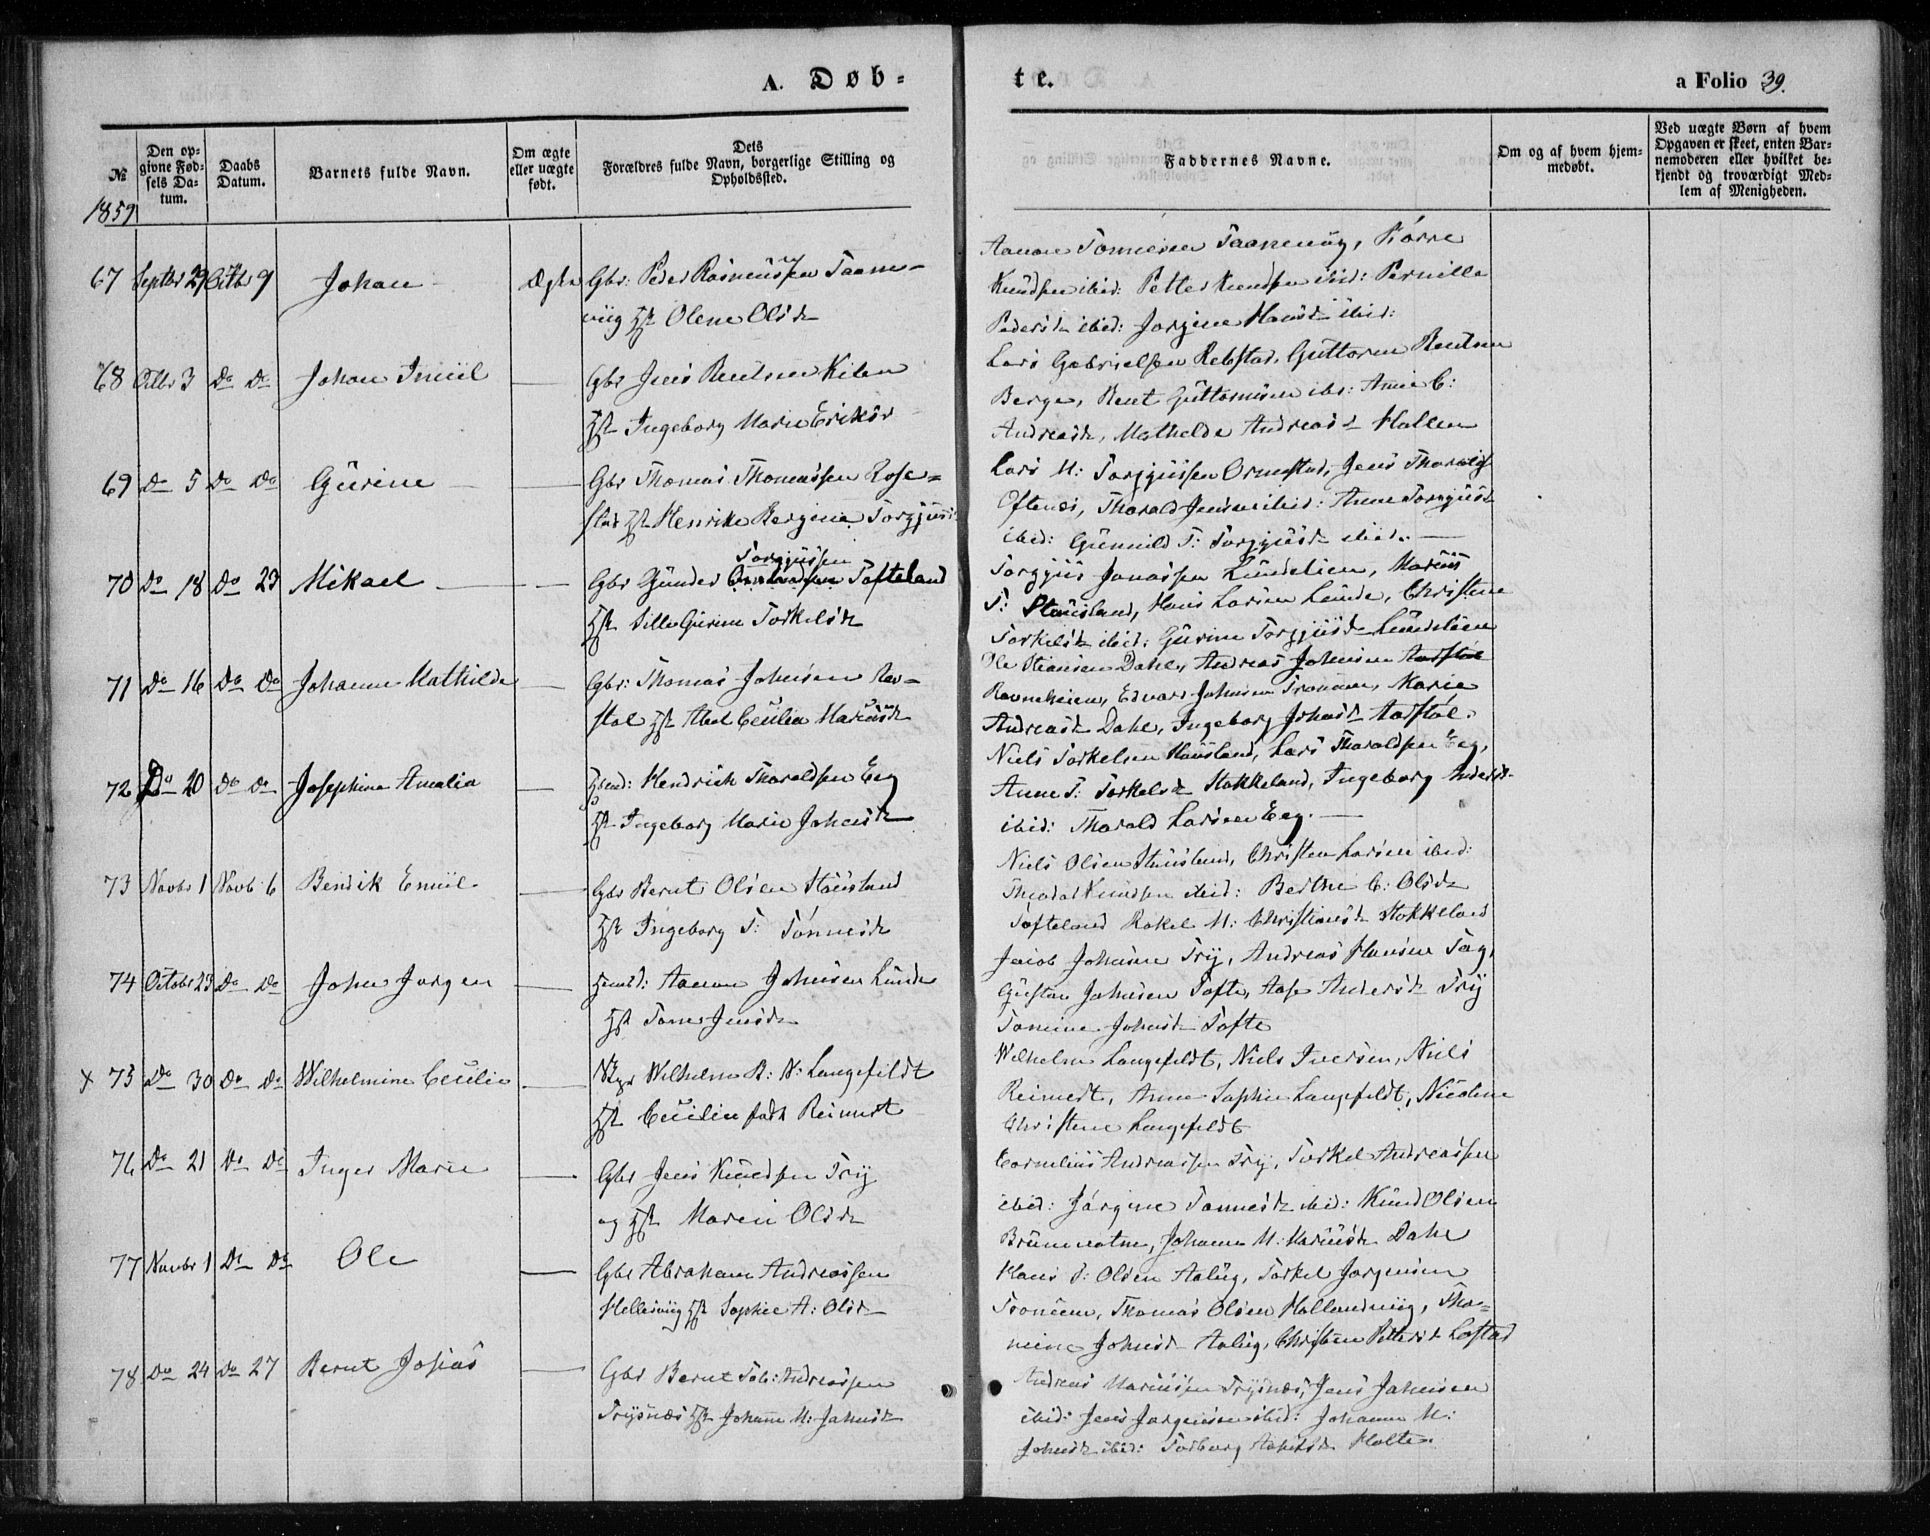 A. Døb-
te.
a Folio 39.
№
Den op-
givne Fød-
sels Da-
tum.
Daabs
Datum.
Barnets fulde Navn.
Om ægte
eller uægte
født.
Dets
Forældres fulde Navn, borgerlige Stilling og
Opholdssted.
Faddernes Navne.
Om og af hvem hjem-
medøbt.
Ved uægte Børn af hvem
Opgaven er skeet, enten Bar-
nemoderen eller hvilket be-
kjendt og troværdigt Med-
lem af Menigheden.
1859
67 Septbr 29 Octbr 9 Johan Ægte Gbr: Peder Rasmussen Taane-
viig Hst Olene Olsd
Aanon Tønnesen Taanevig, Børre
Knudsen ibid: Petter Knudsen ibid: Pernille
Pedersd ibid: Jørgine Hansd ibid:
68 Octbr 3 Do Do Johan Emiil Gbr Jens Bentsen Kilen
Hst Ingeborg Marie Eriksd
Lars Gabrielsen Rebstad, Guttorm Bentsen
Berge, Bent Guttormsen ibd: Anne C:
Andreasd, Mathilde Andreasd Hallen
69 Do 5 Do Do Gurine Gbr Thomas Thomassen Rose-
stad Hst Henrikke Bergine Torgjusd
Lars M: Torgjussen Ormestad, Jens Tharalds
Oftenes, Tharald Jensen ibid: Anne Torgjusd
ibid: Gunnild T: Torgjusd ibid.
70 Do 18 Do 23 Mikael Gbr Gunder Torgjussen Tofteland
Hst Sille Gurine Torkelsd
Torgjus Jonassen Lundelien, Marcus
T: Stausland, Hans Larsen Lunde, Christine
Torkelsd ibid: Gurine Torgjusd Lundelien
71 Do 16 Do Do Johanne Mathilde Gbr: Thomas Johnsen Aar-
støl Hst Abel Cecilia Marcusd
Ole Stiansen Dahle, Andreas Johnsen Aarstøl
Ravneheien, Edvard Johnsen Tronsen, Marie
Andreasd Dahle, Ingeborg Johnsd Aarstøl.
72 Do 20 Do Do Josephine Amalia Hendrich Tharaldsen Eeg
Hst Ingeborg Marie Johnsd
Niels Torkelsen Hausland, Lars Tharaldsen Eeg,
Anne T: Torkelsd Stokkeland, Ingeborg Andersd
ibid: Tharald Larsen Eeg.
73 Novbr 1 Novb 6 Bendik Emiil Gbr Bernt Olsen Stausland
Hst Ingeborg T: Tønnesd
Niels Olsen Stausland, Christen Larsen ibid:
Theodor Knudsen ibid: Berthe C: Olsd
Tofteland Rakel M: Christiansd Stokkeland
74 Octobr 23 Do Do John Jørgen Aanon Johnsen Lunde
Hst Tone Jensd
Jacob Johnsen Try, Andreas Hansen Tag,
Gustav Johnsen Tofte, Aase Andersd Try
Tomine Johnsd Tofte
x 75 Do 30 Do Do Wilhelmine Cecilie Wilhelm B: N: Langefeldt
Hst Cecilie født Reimert
Wilhelm Langefeldt, Niels Iversen, Niels
Reimert, Anne Sophie Langefeldt, Nicoline
Christine Langefeldt
76 Do 21 Do Do Inger Marie Gbr Jens Knudsen Try
og Hst Maren Olsd
Cornelius Andreassen Try, Torkel Andreassen
ibid: Jørgine Tønnesd ibid: Knud Olsen
Brunevatne, Johanne M: Marcusd Dahle
77 Novbr 1 Do Do Ole Gbr Abraham Andreassen
Hellesviig Hst Sophie A: Olsd
Hans J: Olsen Aaliig, Torkel Jørgensen
Tronsen, Thomas Olsen Hallandviig, Tho-
mine Johnsd Aaliig, Christine Pettersd Løstad
78 Do 24 Do 27 Bernt Josias Gbr Bernt Tob: Andreassen
Trysnæs Hst Johanne M: Johnsd
Andreas Marcussen Trysnæs, Jens Johnsen
ibid: Jens Jørgensen ibid: Johanne M:
Johnsd ibid: Torborg Holte.